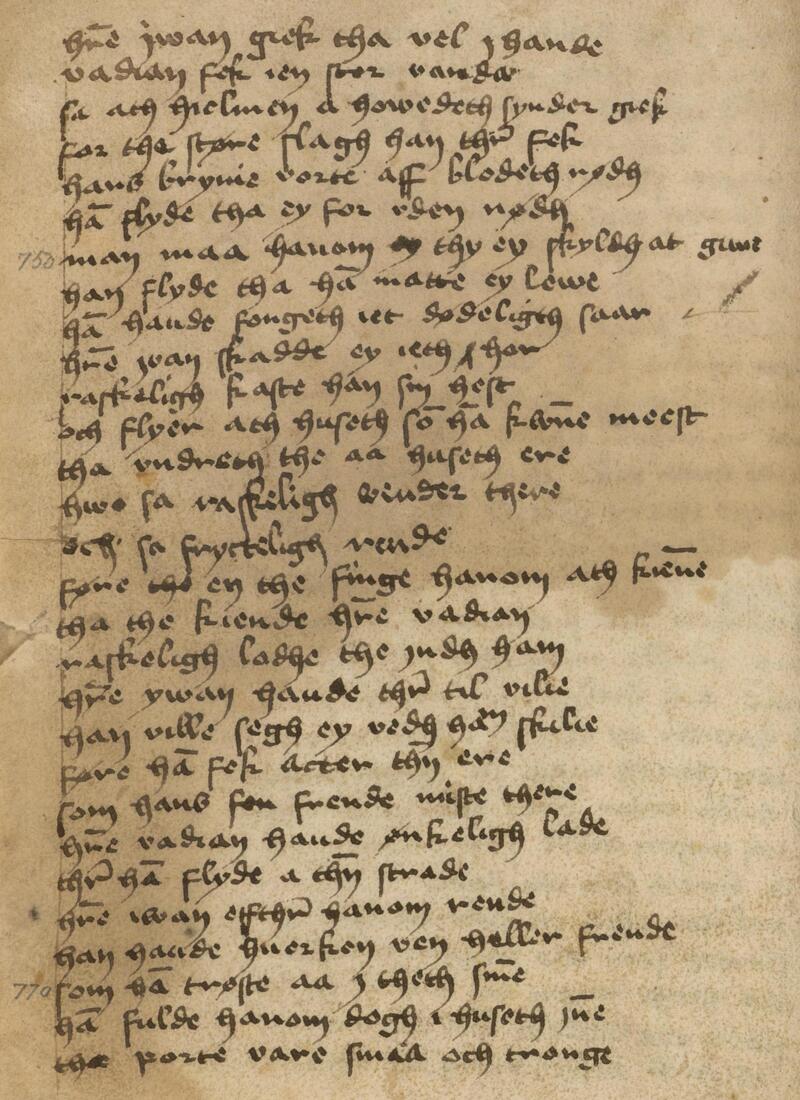 hr̄e jwan giek tha vel j hande
vadian fek ien stor vanda
sa ath hielmen a howedeth synder giek
for the støre slagh han thr̄ fek
hans brynie vorte aff blodeth rødh
hā flyde tha ey for vden nødh
750 man maa hanom thy ey skyldh at giwe
han flyde tha hā matte ey lewe
hā haude fongeth iet dødeligth saar
hr̄e ywan skadde ey ieth hor
raskeligh kaste han sin hest
och flyer ath huseth sō hā kwn̄e meest
tha vndreth the aa huseth ere
hwo sa raskeligh render there
och sa frycteligh rende
føre the en the finge hanom ath kien̄e
tha the kiende hr̄e vadian
raskeligh lodhe the jndh ham
hr̄e ywan haude thr̄ til vilie
han ville segh ey vedh skilie
føre hā fek acter thn̄ ere
som hans frende miste there
hr̄e vadian haude ønkeligh lade
thr̄ hā flyde a thn̄ strade
hr̄e iwan effthr̄ hanom rende
han haude huerken ven heller frende
770 som hā trøste aa j theth sin̄e
hā fulde hanom dogh i huseth jn̄e
the porte vare smaa och tronge